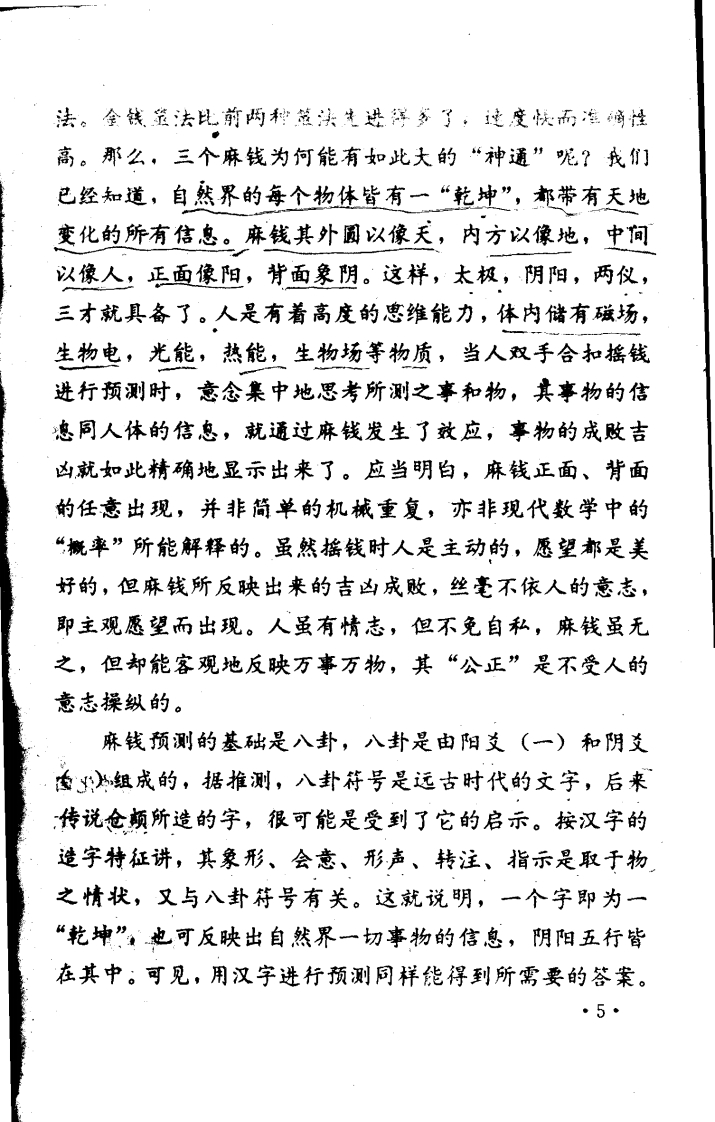 法。金钱筮法比前两种筮法先进得多了，速度快而准确性
高。那么，三个麻钱为何能有如此大的“神通”呢？我们
已经知道，自然界的每个物体皆有一“乾坤”，都带有天地
变化的所有信息。麻钱其外圆以像天，内方以像地，中间
以像人，正面像阳，背面象阴。这样，太极，阴阳，两仪，
三才就具备了。人是有着高度的思维能力，体内储有磁场，
生物电，光能，热能，生物场等物质，当人双手合扣摇钱
进行预测时，意念集中地思考所测之事和物，其事物的信
息同人体的信息，就通过麻钱发生了效应，事物的成败吉
凶就如此精确地显示出来了。应当明白，麻钱正面、背面
的任意出现，并非简单的机械重复，亦非现代数学中的
“概率”所能解释的。虽然摇钱时人是主动的，愿望都是美
好的，但麻钱所反映出来的吉凶成败，丝毫不依人的意志，
即主观愿望而出现。人虽有情志，但不免自私，麻钱虽无
之，但却能客观地反映万事万物，其“公正”是不受人的
意志操纵的。
麻钱预测的基础是八卦，八卦是由阳爻（一）和阴爻
组成的，据推测，八卦符号是远古时代的文字，后来
传说仓颉所造的字，很可能是受到了它的启示。按汉字的
造字特征讲，其象形、会意、形声、转注、指示是取于物
之情状，又与八卦符号有关。这就说明，一个字即为一
“乾坤”，也可反映出自然界一切事物的信息，阴阳五行皆
在其中。可见，用汉字进行预测同样能得到所需要的答案。
·5·